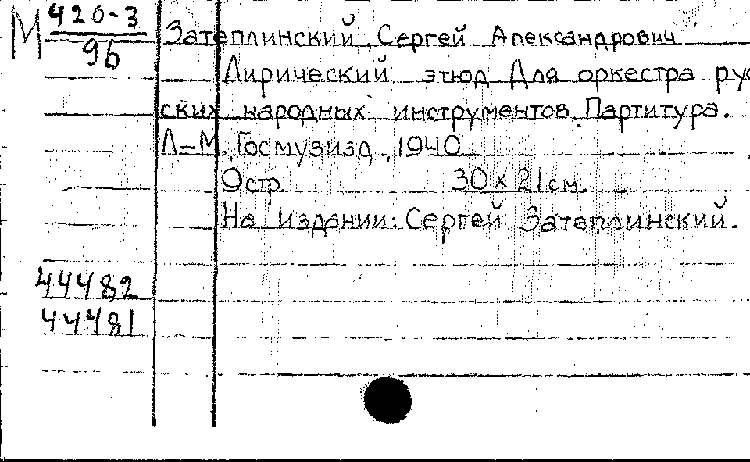 М 420-3
96
Затеплинский, Сергей Александрович
Лирический этюд Для оркестра рус
ских народных инструментов. Партитура.
Л-М, Госмузизд, 1940
9стр. 30×21см.
На издании: Сергей Затеплинский.
44482
44481